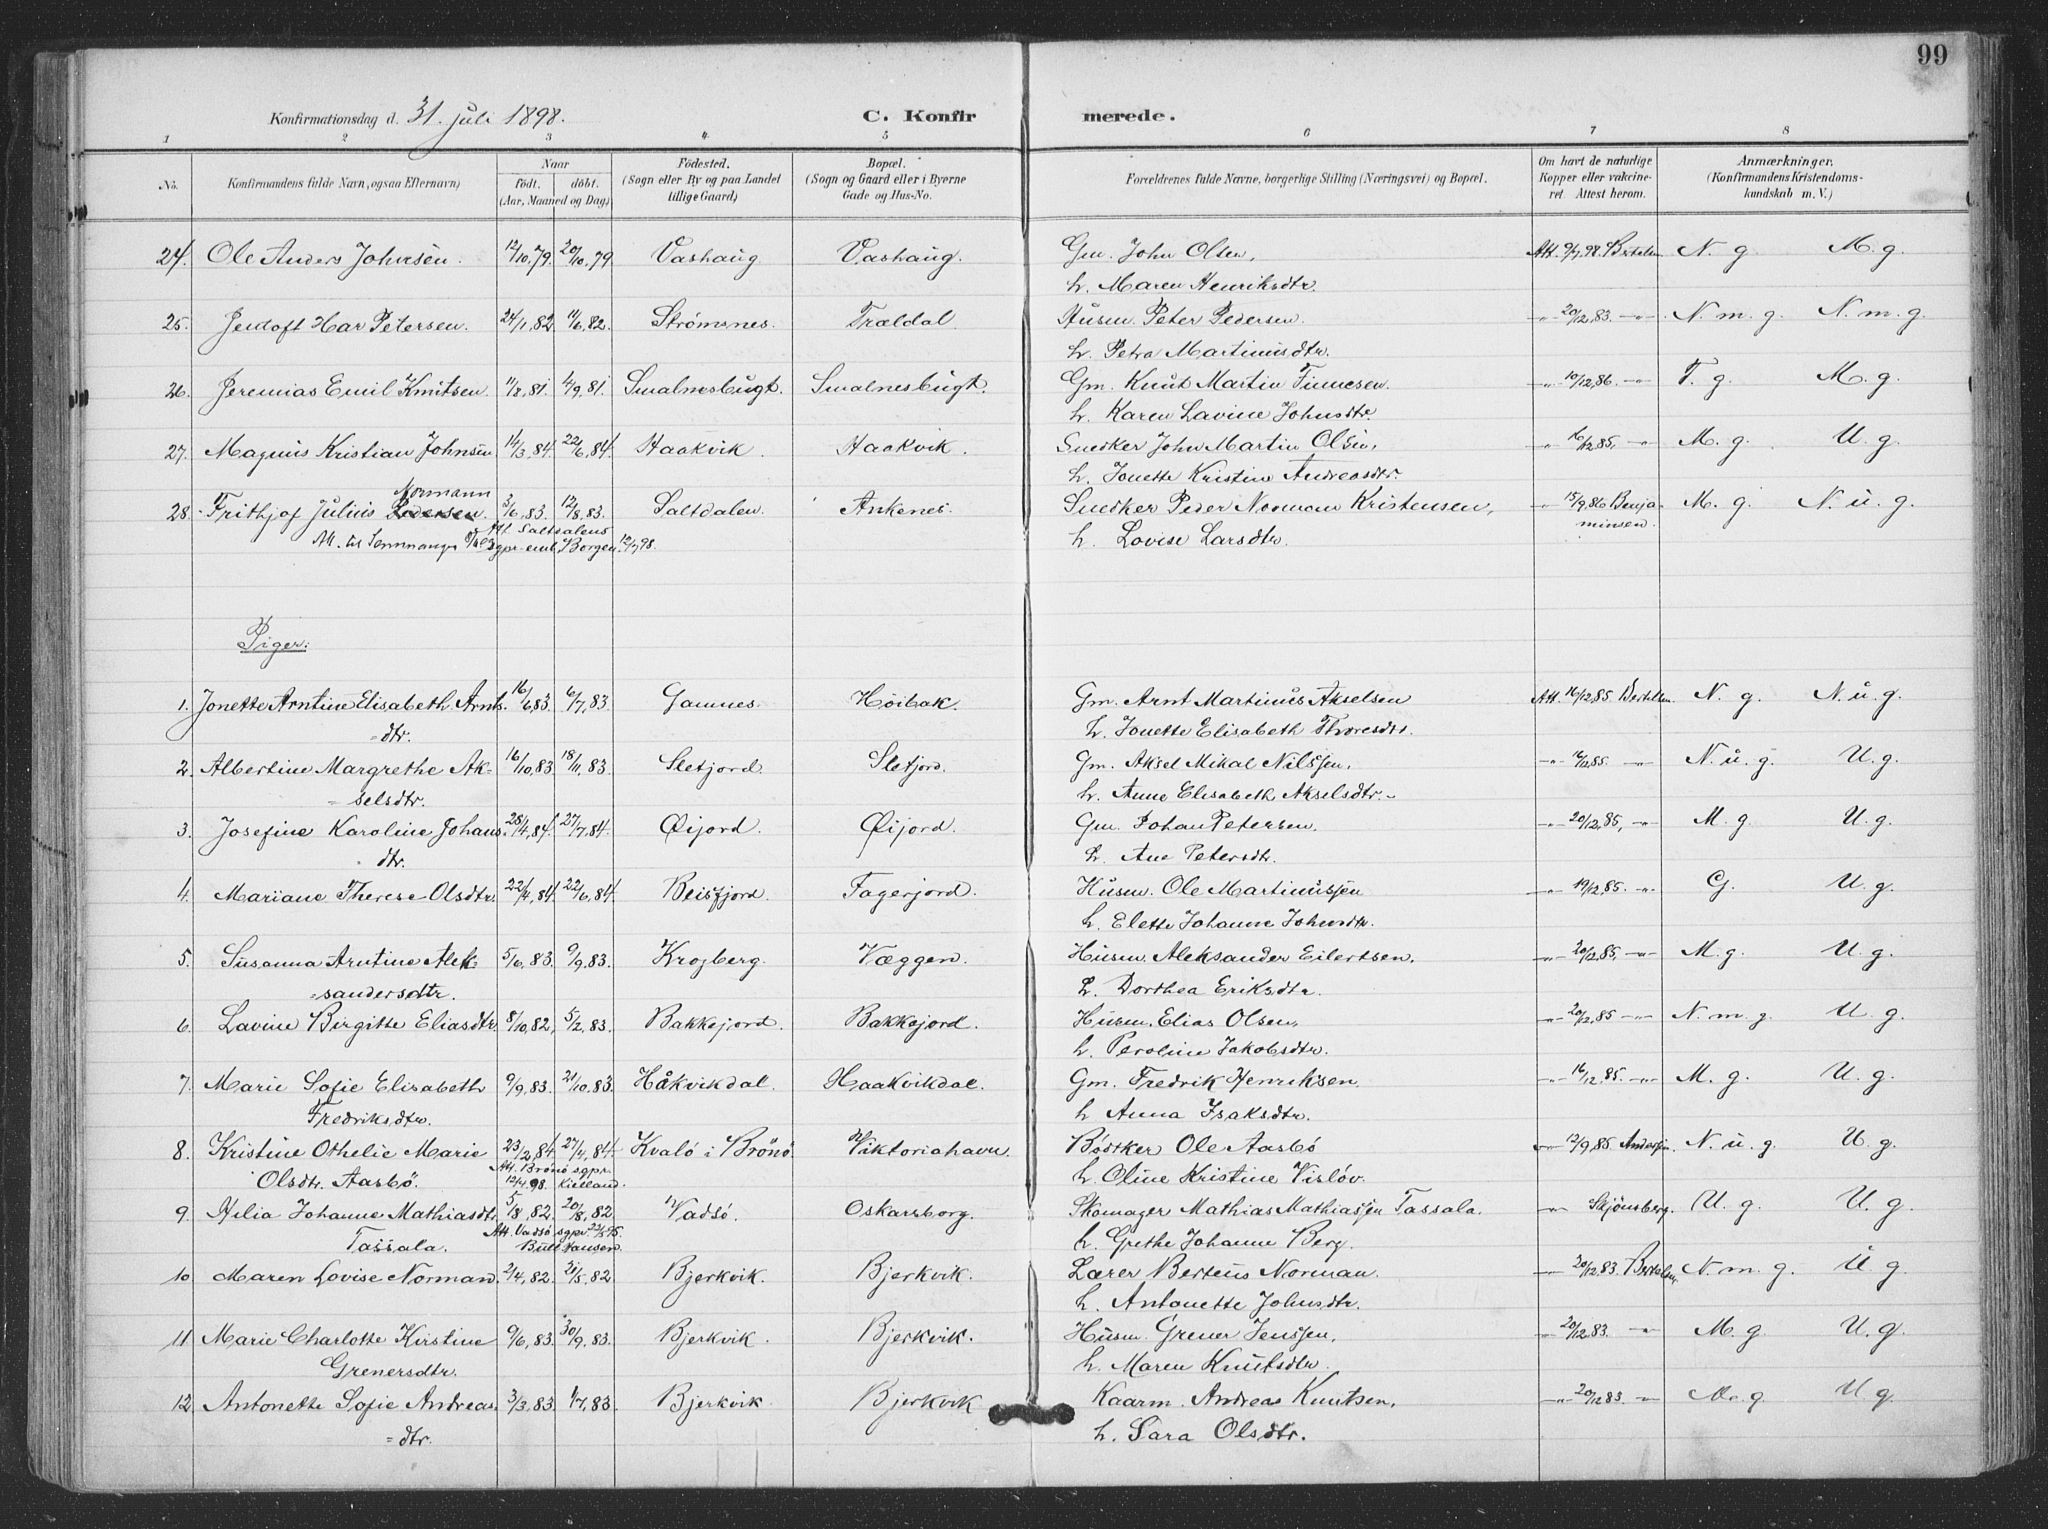 99
Konfirmationsdag d. 31. juli 1898. C. Konfirmerede.
1 2 3 4 5 6 7 8
No. Konfirmandens fulde Navn, ogsaa Efternavn) Naar födt. döbt. (Aar, Maaned og Dag) Födested. (Sogn eller By og paa Landet tillige Gaard) Bopæl. (Sogn og Gaard eller i Byerne Gade og Hus-No. Forældrenes fulde Navne, borgerlige Stilling (Næringsvei) og Bopæl. Om havt de naturlige Kopper eller vakcineret. Attest herom. Anmærkninger. (Konfirmandens Kristendomskundskab m. V.)
24. Ole Anders Johnsen. 12/10,79. 20/10,79 Vashaug Vashaug. Gm. John Olsen, Att. 9/7,98. Bertelsen N. g. M. g.
h. Maren Henriksdtr.
25. Jentoft Har Petersen. 24/1,82 11/6,82. Strömsnes. Trældal. Husm. Peter Pedersen. -"- 20/12,83. -"- N. m. g. N. m. g.
h. Petra Martinusdtr.
26. Jeremias Emil Knutsen 11/8,81. 4/9,81. Smalnesbugt. Smalnesbugt. Gm. Knut Martin Finnesen -"- 10/12,86. -"- T. g. M. g.
h. Karen Lavine Johnsdtr.
27. Magnus Kristian Johnsen 14/3,84. 22/6,84. Haakvik. Haakvik. Snedker John Martin Olsen, -"- 16/12,85, -"- M. g. U. g.
h. Jonette Kristine Andreasdtr.
Normann
28. Frithjof Julius Pedersen. 3/6,83. 12/8,83. Saltdalen. Ankenes. Snedker Peder Norman Kristensen, -"- 15/9,86 Benjaminsen. M. g. N. u. g.
Att. Saltdalens sgpr. emb. Borgen 12/7,98. h. Lovise Larsdtr.
Piger:
1. Jonette Arntine Elisabeth Arnts. 16/6,83. 6/7,83. Gamnes. Høibak. Gm. Arnt Martinus Akselsen Att. 16/12,85 Bertelsen. N. g. N. u. g.
=dtr. h. Jonette Elisabeth Thoresdtr.
2. Albertine Margrethe Ak- 16/10,83 18/11,83. Sletjord. Sletjord. Gm. Aksel Mikal Nilssen. -"- 16/12,85. -"- N. u. g. U. g.
=selsdtr. h. Anne Elisabeth Akselsdtr.-
3. Josefine Karoline Johans. 28/4,84. 27/7,84. Øijord. Øijord. Gm. Johan Petersen. -"- 20/12,85, -"- M. g. U. g.
dtr. h. Ane Petersdtr.
4. Mariane Therese Olsdtr. 22/4,84. 22/6,84. Beisfjord. Fagerjord. Husm. Ole Martinussen -"- 19/12,85. -"- G. U. g.
h. Elette Johanne Johnsdtr.
5. Susanna Arntine Alek- 5/6,83. 9/9,83. Krogberg. Væggen. Husm. Aleksander Eilertsen. -"- 20/12,85, -"- M. g. U. g.
=sandersdtr. h. Dorthea Eriksdtr.
6. Lavine Birgitte Eliasdtr. 8/10,82, 5/2,83. Bakkejord. Bakkejord. Husm. Elias Olsen, -"- 20/12,85 -"- N. m. g. U. g.
h. Peroline Jakobsdtr.
7. Marie Sofie Elisabeth 9/9,83. 21/10,83. Håkvikdal. Haakvikdal. Gm. Fredrik Henriksen -"- 16/12,85. -"- M. g. U. g.
Fredriksdtr. h Anna Isaksdtr.
8. Kristine Othelie Marie 23/2,84. 27/4,84. Kvalö i Brönö. Viktoriahavn Bödtker Ole Aasbö -"- 12/9,85 Anderssen. N. u. g. U. g.
Olsdtr. Aasbö. Att. Brönö sgpr. 12/4.98. Kielland. h. Oline Kristine Vislöv.
9. Hilia Johanne Mathiasdtr. 5/8,82. 20/8,82 Vadsö. Oskarsborg. Skomager Mathias Mathiassen Tassala. -"- Skjönsberg. U. g. U. g.
Tassala. Att. Vadsö sgpr. Bull Hansen. h. Grethe Johanne Berg.
10 Maren Lovise Norman. 21/4,82. 31/5,82 Bjerkvik. Bjerkvik. Lærer Berteus Norman. -"- 20/12,83. Bertelsen N. m. g. U. g.
h. Antonette Johnsdtr.
11 Marie Charlotte Kirstine 9/6,83. 30/9,83. Bjerkvik. Bjerkvik. Husm. Grener Jenssen, -"- 20/12,83. -"- M. g. U. g.
Grenersdtr. h. Maren Knutsdtr.
12 Antonette Sofie Andreas. 3/3,83. 1/7,83. Bjerkvik Bjerkvik Kaarm. Andreas Knutsen, -"- 20/12,83 -"- M. g U. g
=dtr. h. Sara Olsdtr.